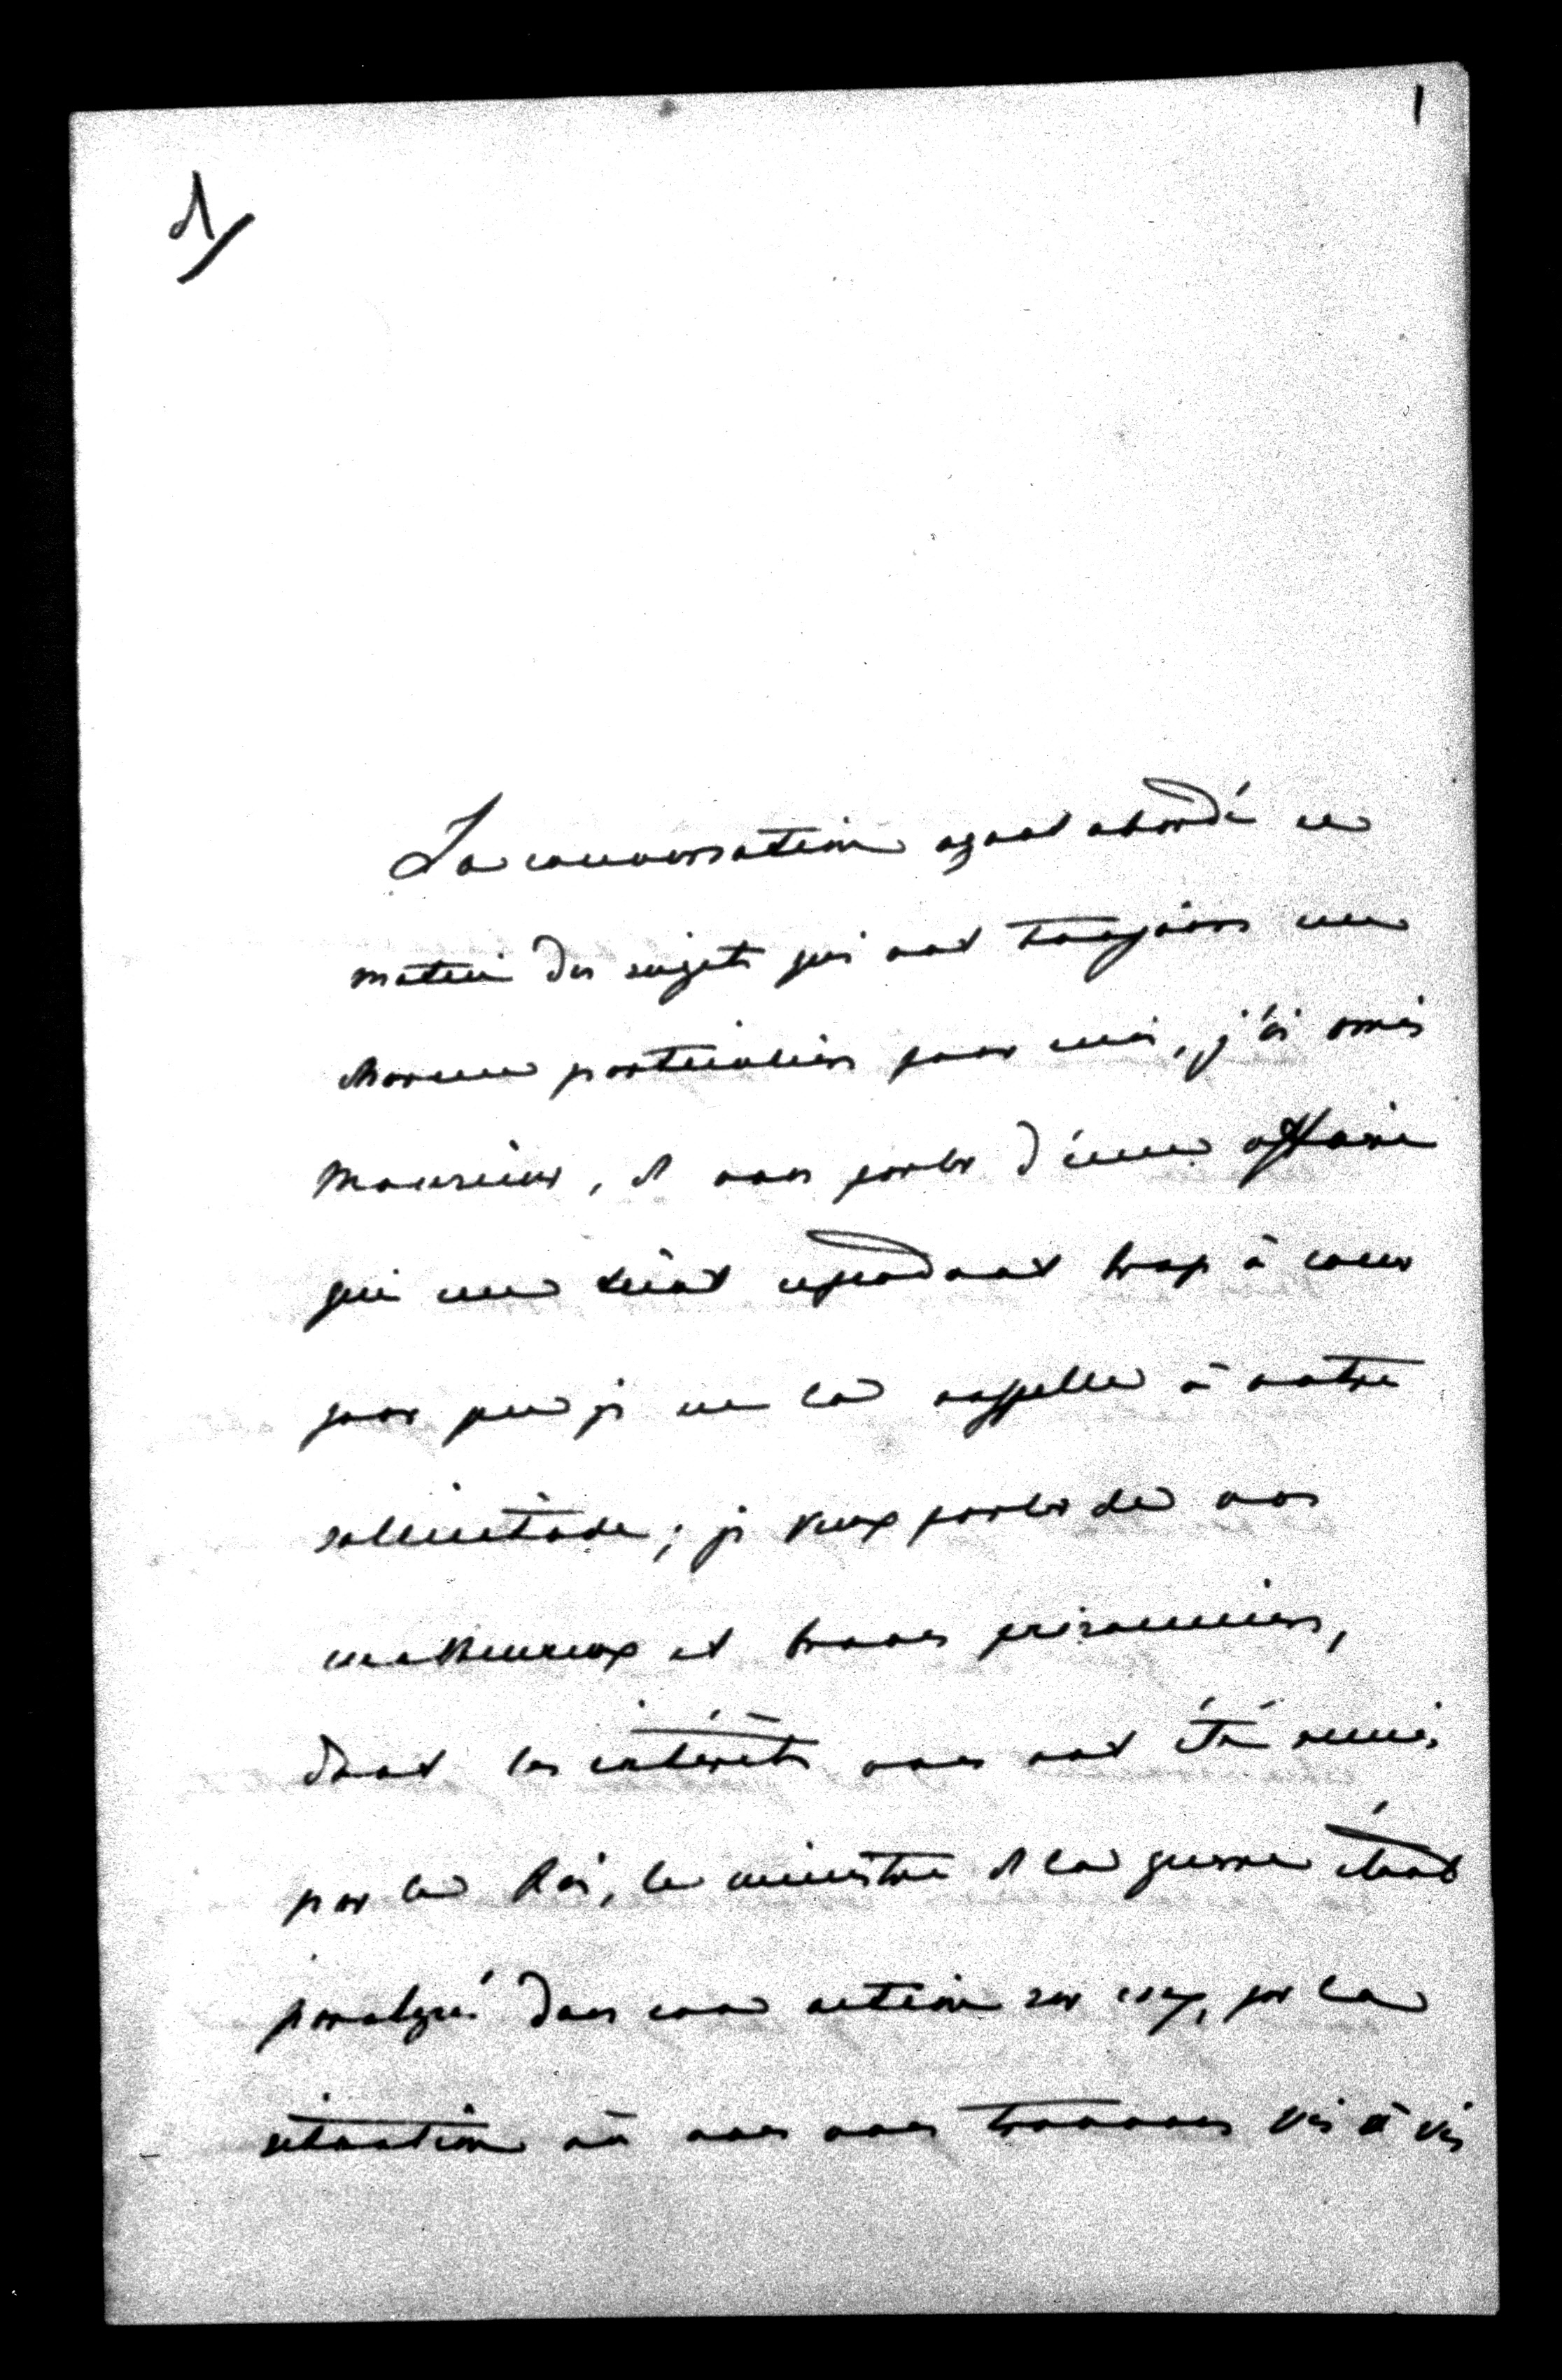 1
1/
La conversation ayant abordé ce
matin des sujets qui ont toujours un
charme particulier pour moi, j'ai omis
Monsieur, de vous parler d'une affaire
qui me tient cependant trop à cœur
pour que je ne la rappelle à votre
sollicitude; je veux parler de nos
malheureux et braves prisonniers,
dont les intérêts vous ont été remis
par le Roi, le ministre de la guerre étant
paralysé dans son action sur eux, par la
situation où nous nous trouvons vis à vis